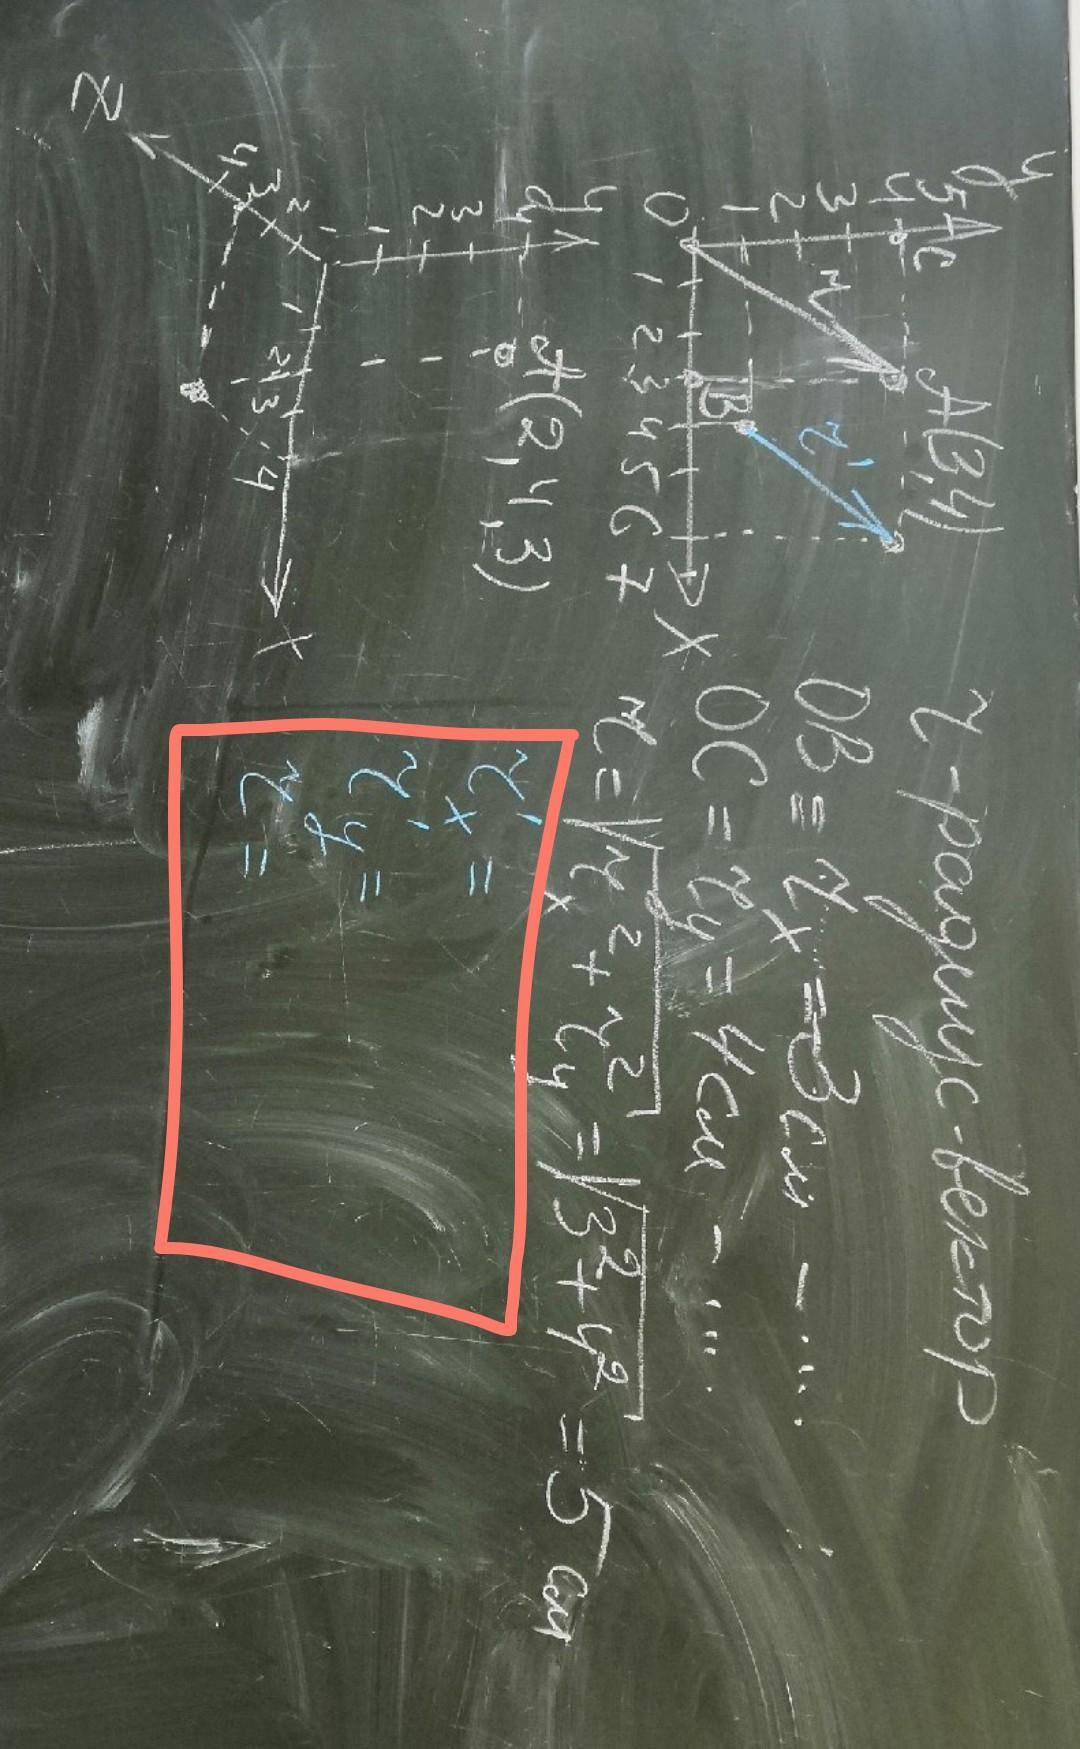 y
5
4 C A(3,4)
3 r r'
2
1
B
0 1 2 3 4 5 6 7 X
r - радиус-вектор
OB = r_x = 3 см - ...
OC = r_y = 4 см - ...
r = √r_x² + r_y² = √3² + 4² = 5 см
r'_x =
r'_y =
r =
y
4 A(2,4,3)
3
2
1
1 2 3 4 X
2
3
4
Z